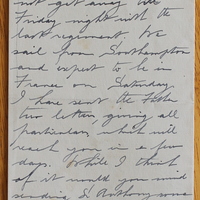 not get away till
Friday night with the
last regiment. We
sail from Southampton
and expect to be in
France on Saturday
I have sent the Pater
two letters, giving all
particulars, which will
reach you in a few
days. While I think
of it would you mind
sending